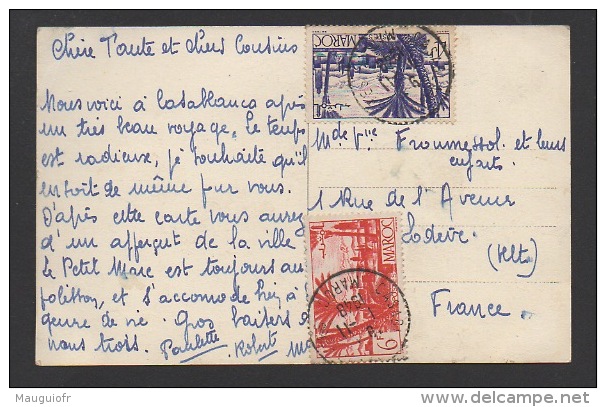 Chère Tante et chers Cousins
Nous voici à Casablanca après
un très beau voyage, le temps
est radieux, je souhaite qu'il
en soit de même pour vous.
D'après cette carte vous aurez
d'un apperçut de la ville
le Petit Marc est toujours au
polisson, et s'accomode à
genre de vie. Gros baisers de
nous trois. Paulette Robert
Mde Vve Froumessol et leurs
enfants.
1 Rue de l'Avenir
Lodève
(Hlt)
France
MAROC
MAROC
6
Mauguiofr
delcampe.net